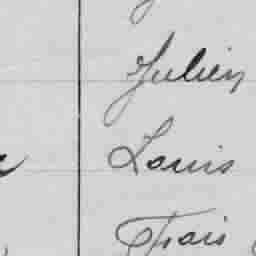 Julien
Louis
Frais